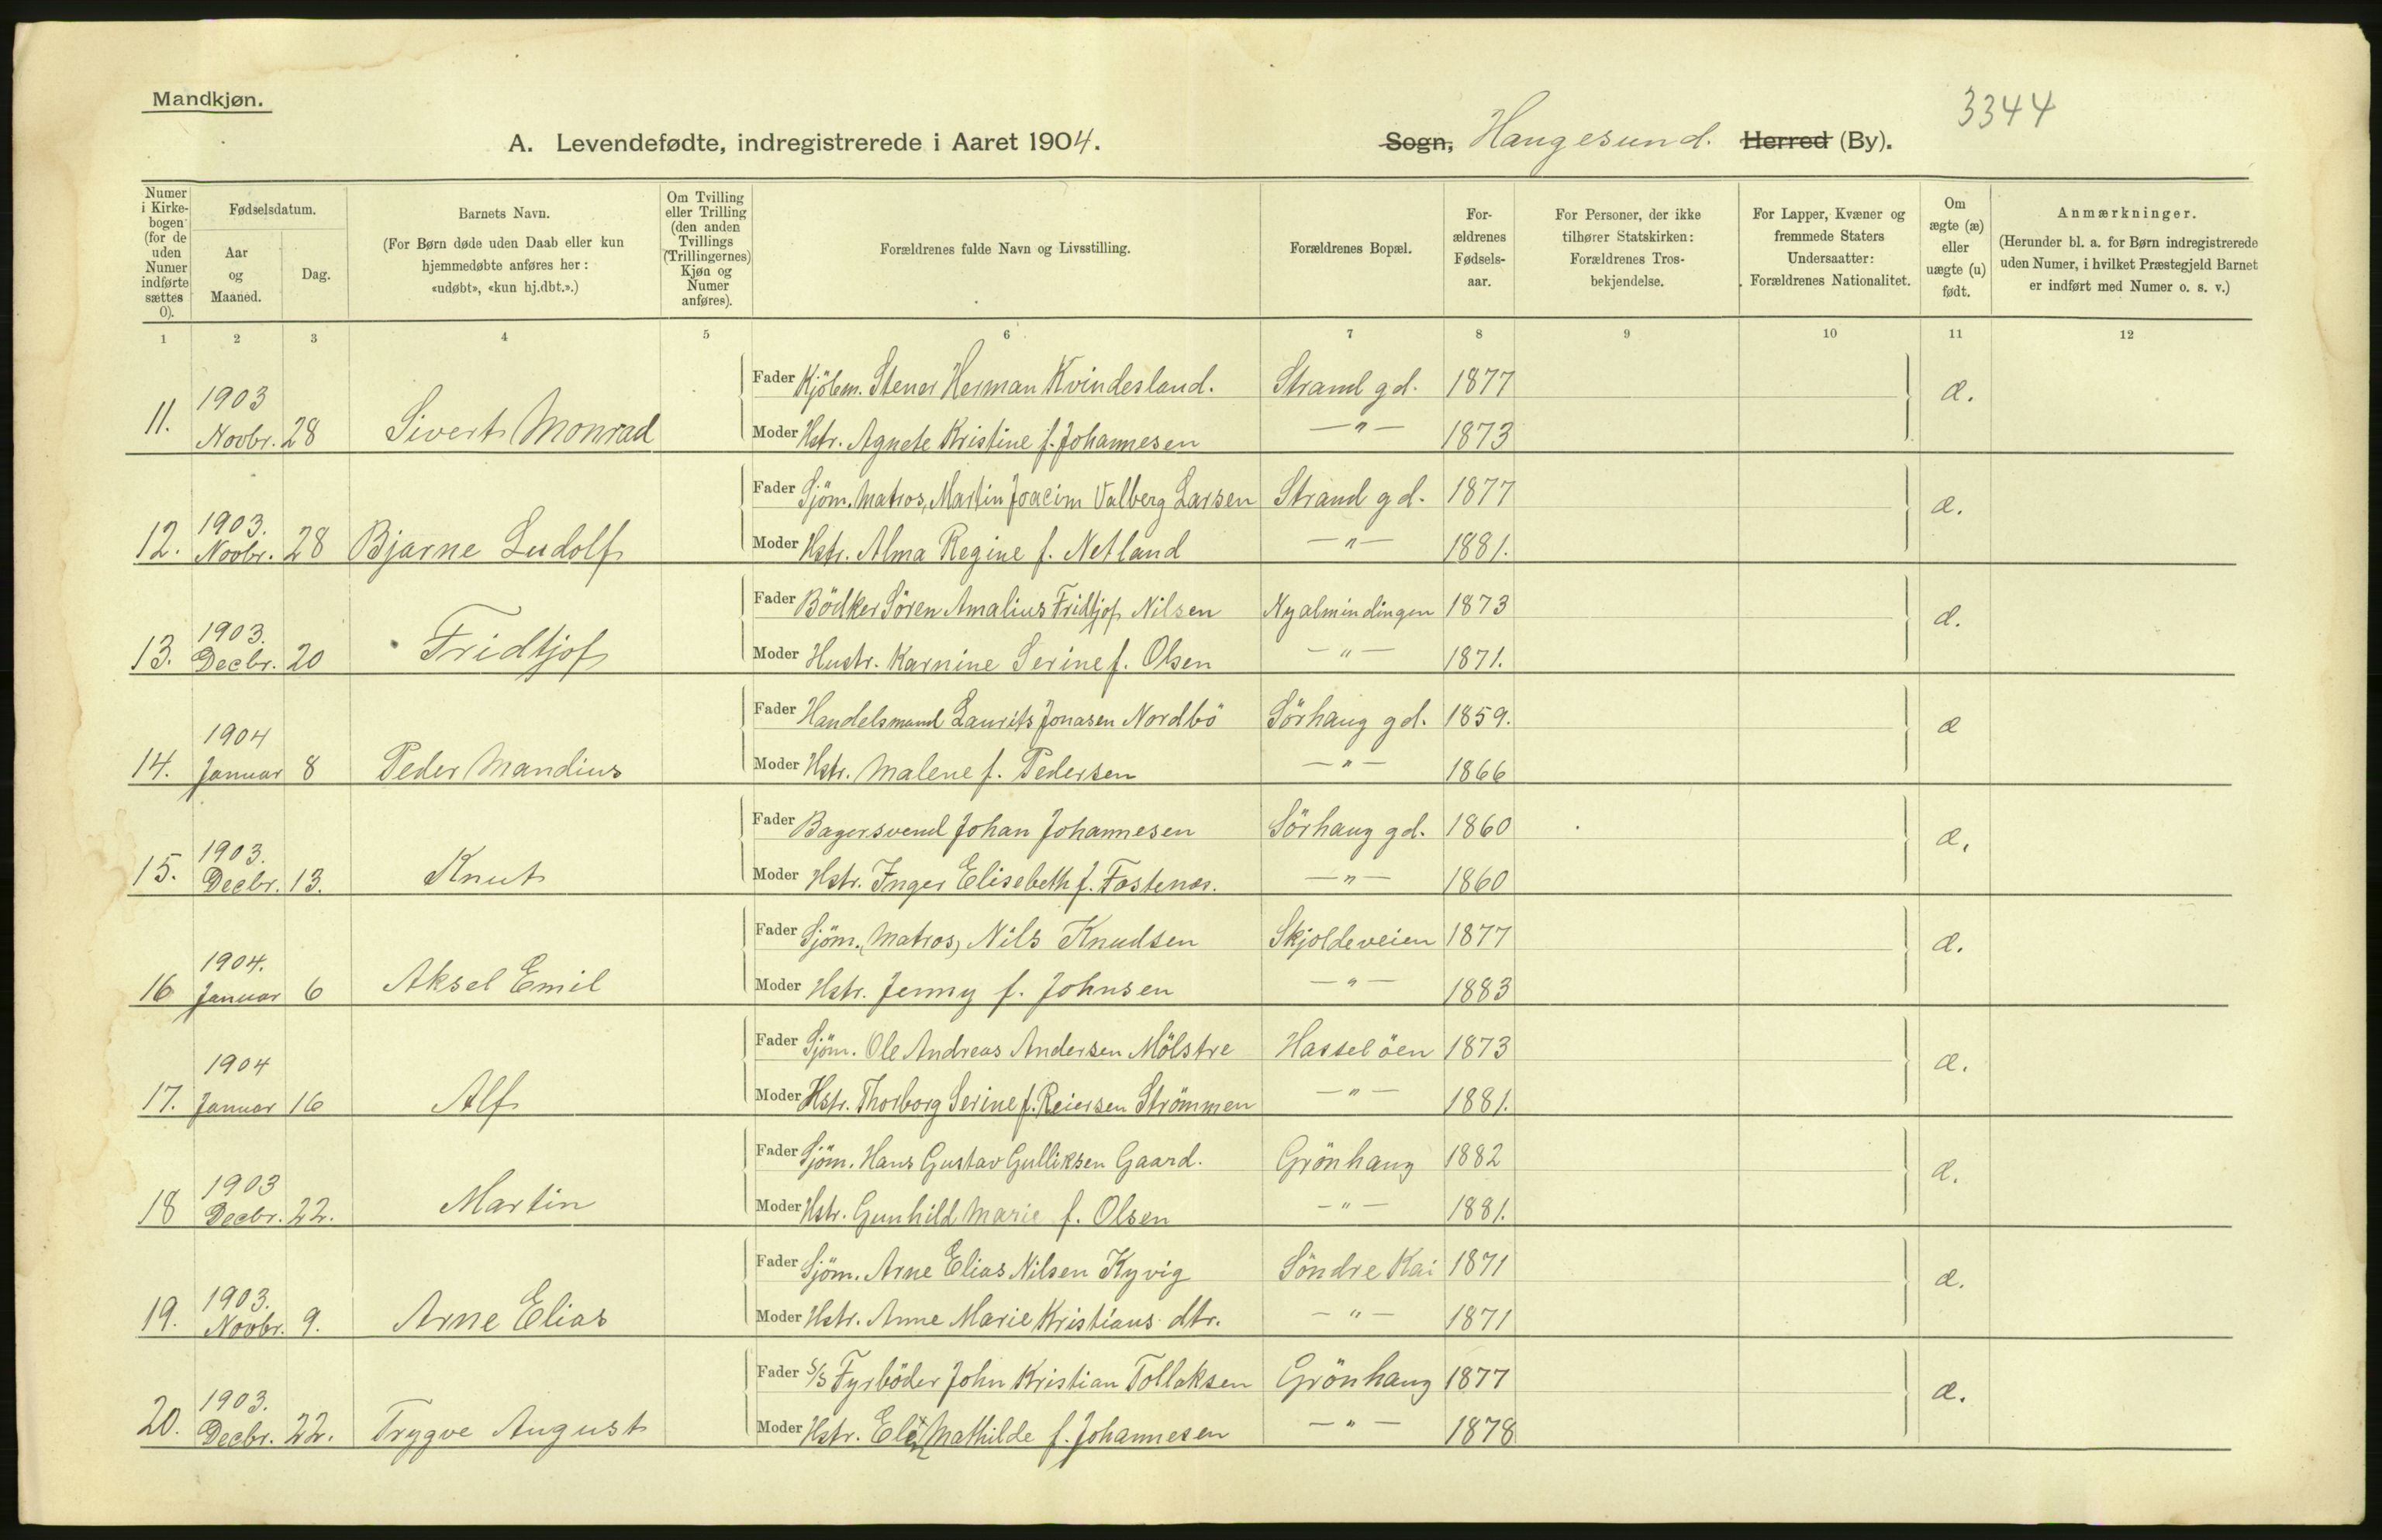 Mandkjøn.
3344
A. Levendefødte, indregistrerede i Aaret 1904.
Sogn, Haugesund. Herred (By).
Numer i Kirkebogen (for de uden Numer indførte sættes 0).
Fødselsdatum.
Aar og Maaned.
Dag.
Barnets Navn.
(For Børn døde uden Daab eller kun hjemmedøbte anføres her: «udøbt», «kun hj.dbt.».)
Om Tvilling eller Trilling (den anden Tvillings (Trillingernes) Kjøn og Numer anføres).
Forældrenes fulde Navn og Livsstilling.
Forældrenes Bopæl.
Forældrenes Fødselsaar.
For Personer, der ikke tilhører Statskirken: Forældrenes Trosbekjendelse.
For Lapper, Kvæner og fremmede Staters Undersaatter: Forældrenes Nationalitet.
Om ægte (æ) eller uægte (u) født.
Anmærkninger.
(Herunder bl. a. for Børn indregistrerede uden Numer, i hvilket Præstegjeld Barnet er indført med Numer o. s. v.)
1 2 3 4 5 6 7 8 9 10 11 12
Fader Kjölem. Stener Herman Kvindesland. Strand gd. 1877 æ.
11. 1903 Novbr. 28 Sivert Monrad
Moder Hstr. Agnete Kristine f. Johannesen —"— 1873
Fader Sjöm. Matros, Martin Joacim Valberg Larsen Strand gd. 1877 æ.
12. 1903. Novbr. 28 Bjarne Ludolf
Moder Hstr. Alma Regine f. Netland —"— 1881.
Fader Bödker Sören Amalius Fridtjof Nilsen Nyalmindingen 1873 æ.
13. 1903. Decbr. 20 Fridtjof
Moder Hustr. Karnine Serine f. Olsen —"— 1871.
Fader Handelsmand Laurits Jonasen Nordbö Sörhaug gd. 1859. æ
14. 1904 Januar 8 Peder Mandius
Moder Hstr. Malene f. Pedersen —"— 1866
Fader Bagersvend Johan Johannesen Sörhaug gd. 1860 æ.
15. 1903. Decbr. 13. Knut
Moder Hstr. Inger Elisebeth f. Fostenes. —"— 1860
Fader Sjöm. (Matros) Nils Knudsen Skjoldeveien 1877 æ.
16 1904. Januar 6 Aksel Emil
Moder Hstr. Jenny f. Johnsen —"— 1883
Fader Sjöm. Ole Andreas Andersen Mölstre Hasselöen 1873 æ.
17. 1904 Januar 16 Alf
Moder Hstr. Thorborg Serine f. Reiersen Strömmen —"— 1881.
Fader Sjöm. Hans Gustav Gulliksen Gaard. Grönhaug 1882 æ.
18 1903 Decbr. 22. Martin
Moder Hstr. Gunhild Marie f. Olsen —"— 1881.
Fader Sjöm. Arne Elias Nilsen Kyvig Söndre Kai 1871 æ.
19. 1903. Novbr. 9. Arne Elias
Moder Hstr. Anne Marie Kristians dtr. —"— 1871
Fader S/S Fyrböder John Kristian Tollaksen Grönhaug 1877 æ.
20. 1903. Decbr. 22. Trygve August
Moder Hstr. Mathilde f. Johannesen —"— 1878